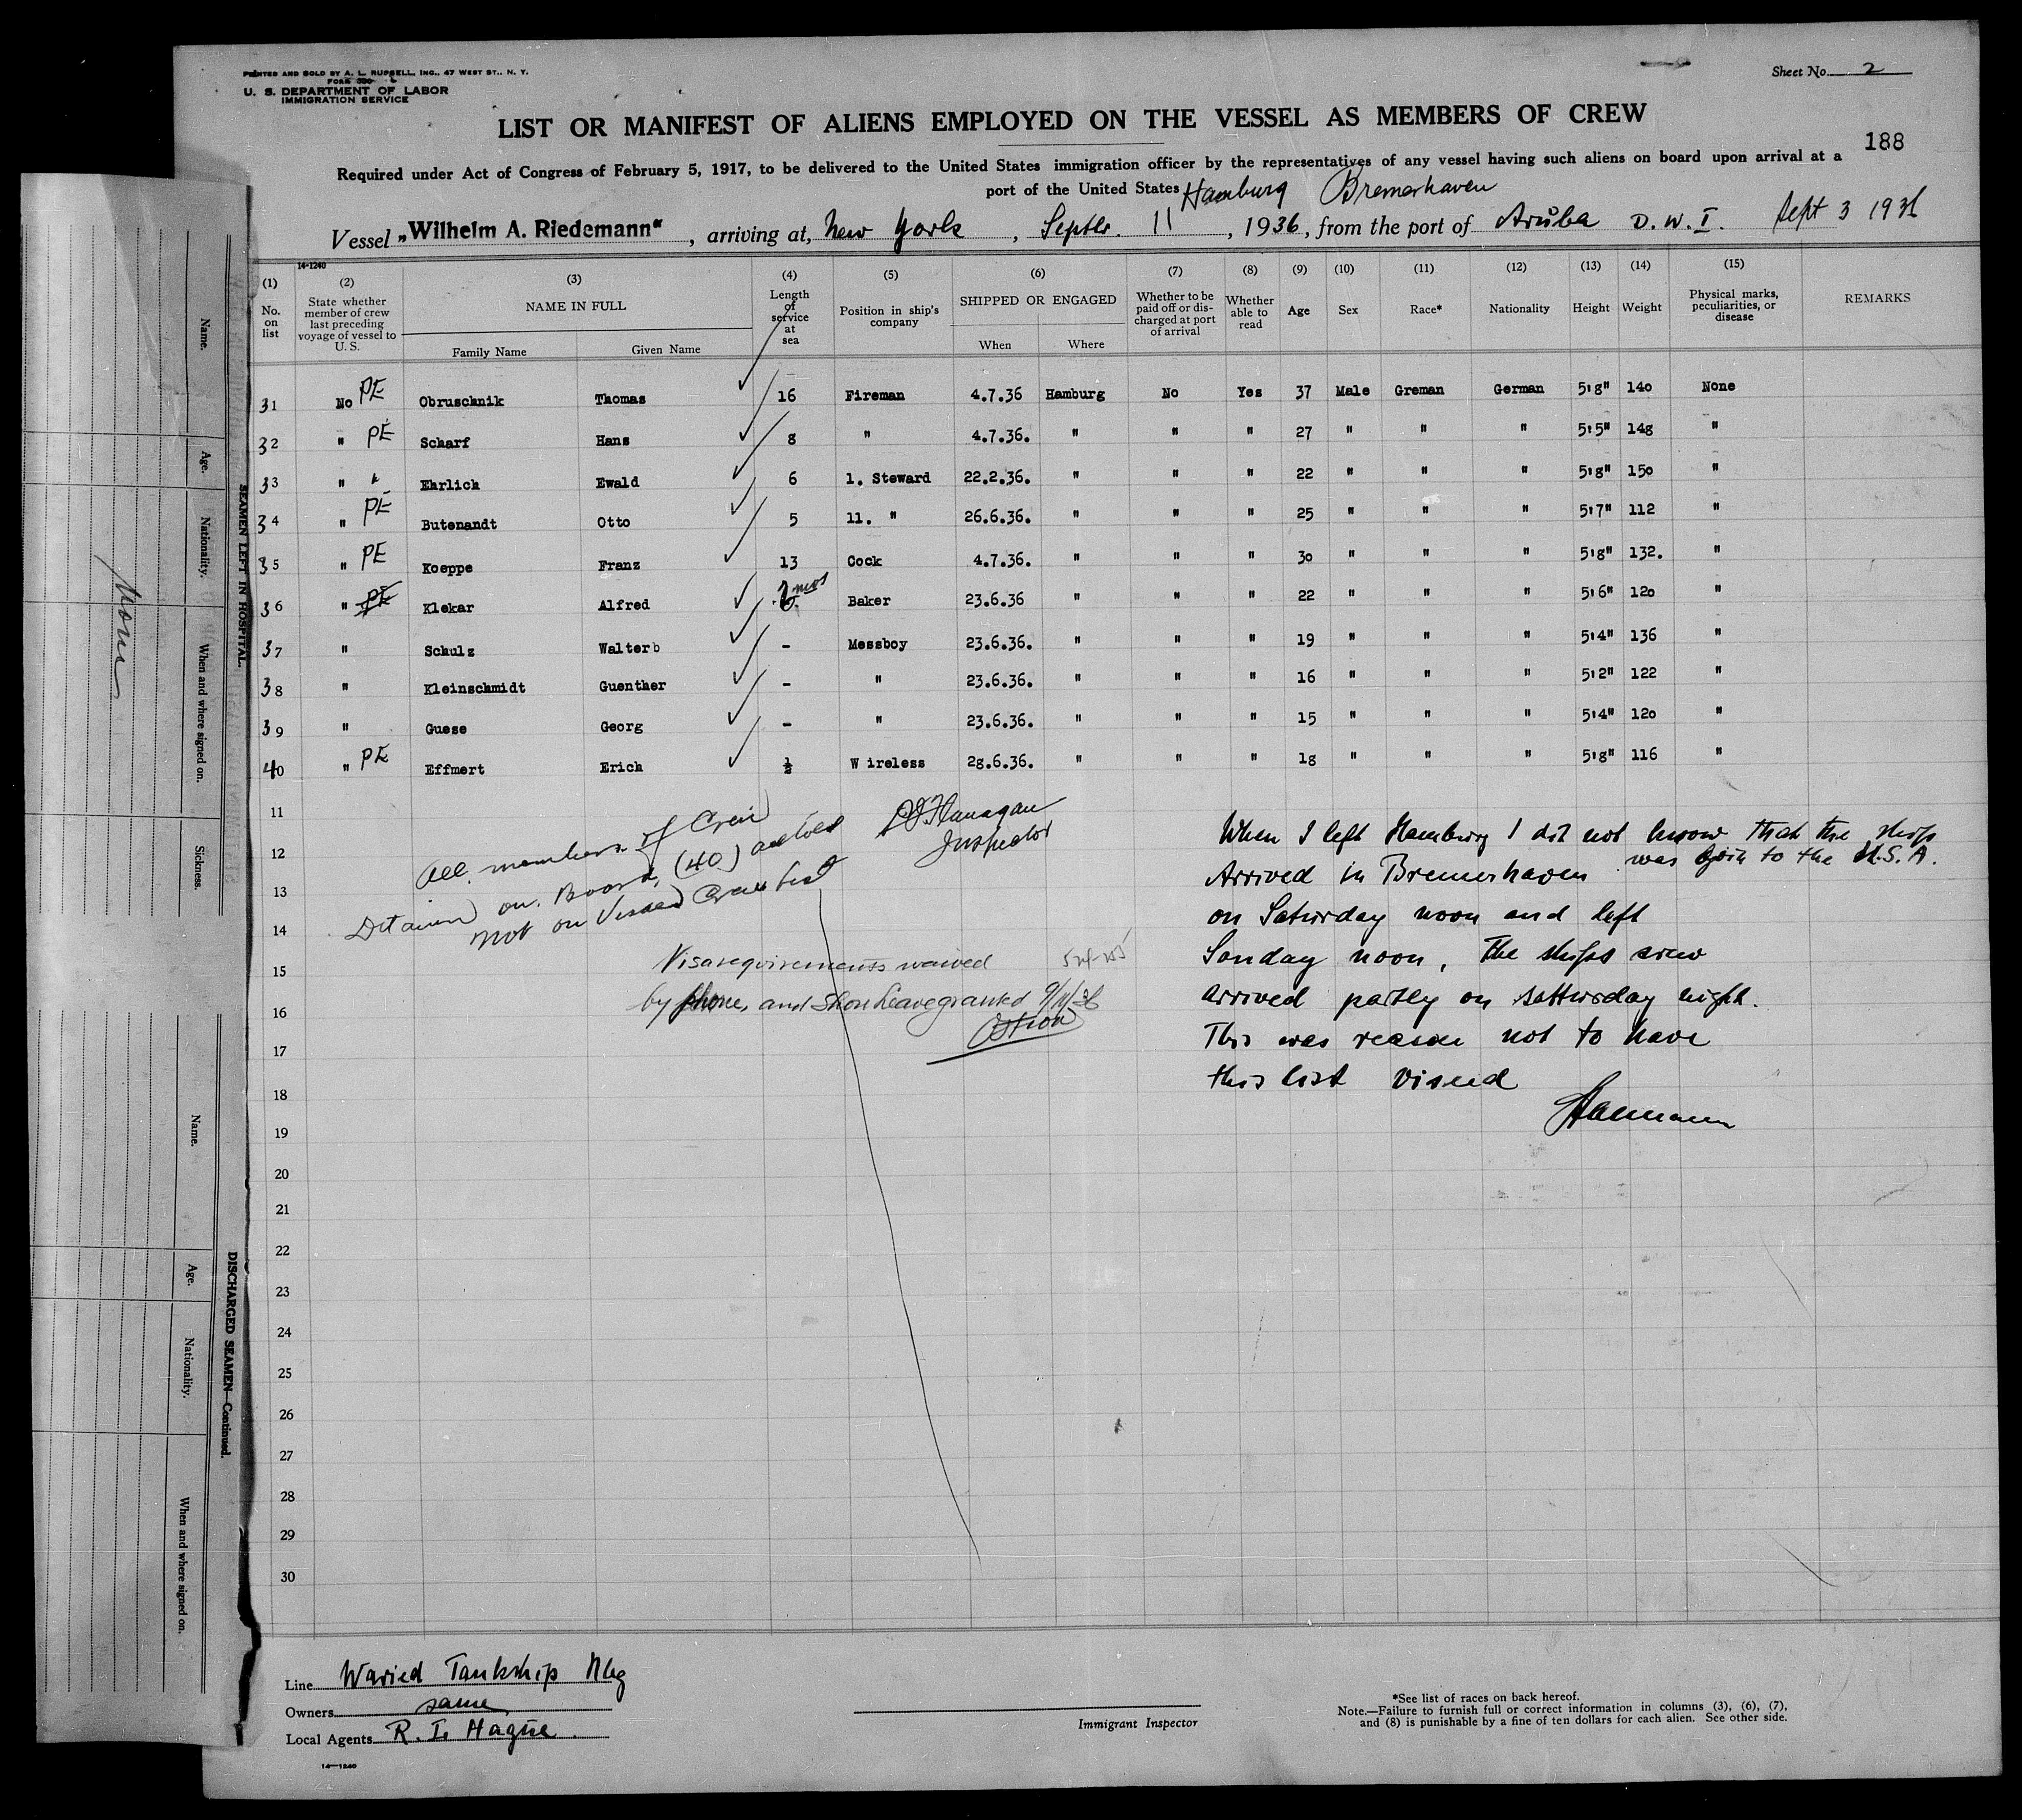 PRINTED AND SOLD BY A. L. RUSSELL, INC., 47 WEST ST., N. Y.
FORM 500
U. S. DEPARTMENT OF LABOR
IMMIGRATION SERVICE
Sheet No. 2
LIST OR MANIFEST OF ALIENS EMPLOYED ON THE VESSEL AS MEMBERS OF CREW
188
Required under Act of Congress of February 5, 1917, to be delivered to the United States immigration officer by the representatives of any vessel having such aliens on board upon arrival at a
port of the United States
Hamburg Bremerhaven
Vessel „Wilhelm A. Riedemann“, arriving at, New York, Septbr. 11, 1936, from the port of Aruba D. W. I. Sept 3 1936
14-1240
(1) No. on list
(2) State whether member of crew last preceding voyage of vessel to U. S.
(3) NAME IN FULL
Family Name Given Name
(4) Length of service at sea
(5) Position in ship's company
(6) SHIPPED OR ENGAGED
When Where
(7) Whether to be paid off or discharged at port of arrival
(8) Whether able to read
(9) Age
(10) Sex
(11) Race*
(12) Nationality
(13) Height
(14) Weight
(15) Physical marks, peculiarities, or disease
REMARKS
31 No PE Obruschnik Thomas 16 Fireman 4.7.36 Hamburg No Yes 37 Male Greman German 5'8" 140 None
32 " PE Scharf Hans 8 " 4.7.36. " " " 27 " " " 5'5" 148 "
33 " " Ehrlich Ewald 6 1. Steward 22.2.36. " " " 22 " " " 5'8" 150 "
34 " PE Butenandt Otto 5 11. " 26.6.36. " " " 25 " " " 5'7" 112 "
35 " PE Koeppe Franz 13 Cock 4.7.36. " " " 30 " " " 5'8" 132. "
36 " PE Klekar Alfred mos Baker 23.6.36 " " " 22 " " " 5'6" 120 "
37 " Schulz Walterb - Messboy 23.6.36. " " " 19 " " " 5'4" 136 "
38 " Kleinschmidt Guenther - " 23.6.36. " " " 16 " " " 5'2" 122 "
39 " Guese Georg - " 23.6.36. " " " 15 " " " 5'4" 120 "
40 " PE Effmert Erich ½ W ireless 28.6.36. " " " 18 " " " 5'8" 116 "
11
12
13
14
15
16
17
18
19
20
21
22
23
24
25
26
27
28
29
30
All members of Crew
Detained on Board, (40)
not on Visaed Crew list
Flanagan
Inspector
Visa requirements waived
by phone, and Shore Leave granted 9/11/36
When I left Hamburg I did not know that the ship
was goin to the U.S.A.
Arrived in Bremerhaven
on Saturday noon and left
Sonday noon, The ships crew
arrived partly on satturday night.
This was reason not to have
this list viseed
Line Waried Tankship Rhg
Owners same
Local Agents R. L. Hague
14-1240
Immigrant Inspector
*See list of races on back hereof.
Note.—Failure to furnish full or correct information in columns (3), (6), (7),
and (8) is punishable by a fine of ten dollars for each alien. See other side.
SEAMEN LEFT IN HOSPITAL.
Name.
Age.
Nationality.
When and where signed on.
Sickness.
None
DISCHARGED SEAMEN—Continued.
Name.
Age.
Nationality.
When and where signed on.